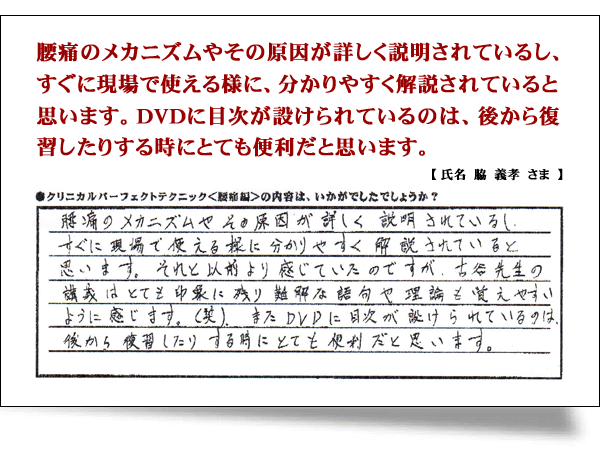 腰痛のメカニズムやその原因が詳しく説明されているし、
すぐに現場で使える様に、分かりやすく解説されていると
思います。DVDに目次が設けられているのは、後から復
習したりする時にとても便利だと思います。
【 氏名 脇 義孝 さま 】
●クリニカルパーフェクトテクニック<腰痛編>の内容は、いかがでしたでしょうか?
腰痛のメカニズムやその原因が詳しく説明されているし、
すぐに現場で使える様に分かりやすく解説されていると
思います。それと以前より感じていたのですが、古谷先生の
講義はとても印象に残り難解な語句や理論も覚えやすい
ように感じます。(笑). またDVDに目次が設けられているのは、
後から復習したりする時にとても便利だと思います。